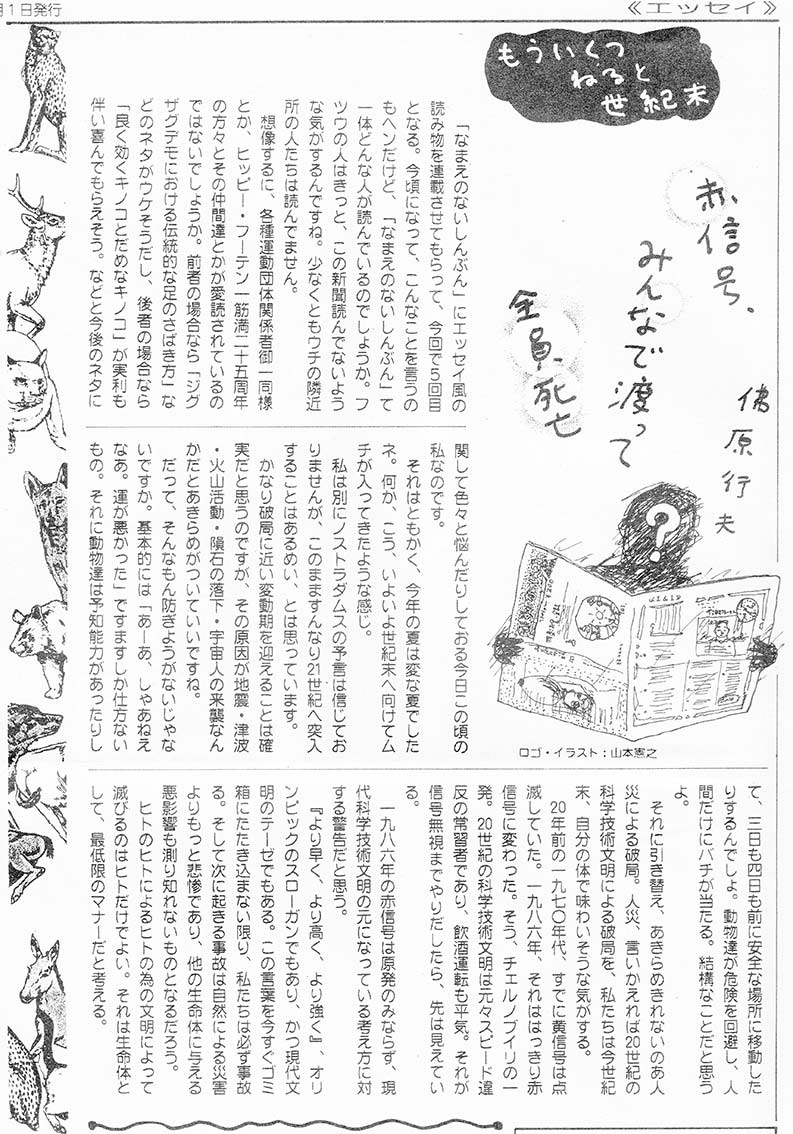 月1日発行
《エッセイ》
もういくつ
ねると
世紀末
赤信号、
みんなで渡って
全員、死亡
佛原行夫
「なまえのないしんぶん」にエッセイ風の
読み物を連載させてもらって、今回で5回目
となる。今頃になって、こんなことを言うの
もヘンだけど、「なまえのないしんぶん」て
一体どんな人が読んでいるのでしょうか。フ
ツウの人はきっと、この新聞読んでないよう
な気がするんですね。少なくともウチの隣近
所の人たちは読んでません。
想像するに、各種運動団体関係者御一同様
とか、ヒッピー・フーテン一筋満二十五周年
の方々とその仲間達とかが愛読されているの
ではないでしょうか。前者の場合なら「ジグ
ザグデモにおける伝統的な足のさばき方」な
どのネタがウケそうだし、後者の場合なら
「良く効くキノコとだめなキノコ」が実利も
伴い喜んでもらえそう。などと今後のネタに
関して色々と悩んだりしておる今日この頃の
私なのです。
それはともかく、今年の夏は変な夏でした
ネ。何か、こう、いよいよ世紀末へ向けてム
チが入ってきたような感じ。
私は別にノストラダムスの予言は信じてお
りませんが、このまますんなり21世紀へ突入
することはあるめい、とは思っています。
かなり破局に近い変動期を迎えることは確
実だと思うのですが、その原因が地震・津波
・火山活動・隕石の落下・宇宙人の来襲なん
かだとあきらめがついていいですね。
だって、そんなもん防ぎようがないじゃな
いですか。基本的には「あーあ、しゃあねえ
なあ。運が悪かった」ですますしか仕方ない
もの。それに動物達は予知能力があったりし
ロゴ・イラスト：山本憲之
て、三日も四日も前に安全な場所に移動した
りするんでしょ。動物達が危険を回避し、人
間だけにバチが当たる。結構なことだと思う
よ。
それに引き替え、あきらめきれないのあ人
災による破局。人災、言いかえれば20世紀の
科学技術文明による破局を、私たちは今世紀
末、自分の体で味わいそうな気がする。
20年前の一九七〇年代、すでに黄信号は点
滅していた。一九八六年、それははっきり赤
信号に変わった。そう、チェルノブイリの一
発。20世紀の科学技術文明は元々スピード違
反の常習者であり、飲酒運転も平気。それが
信号無視までやりだしたら、先は見えてい
る。
一九八六年の赤信号は原発のみならず、現
代科学技術文明の元になっている考え方に対
する警告だと思う。
『より早く、より高く、より強く』、オリ
ンピックのスローガンでもあり、かつ現代文
明のテーゼでもある。この言葉を今すぐゴミ
箱にたたき込まない限り、私たちは必ず事故
る。そして次に起きる事故は自然による災害
よりもっと悲惨であり、他の生命体に与える
悪影響も測り知れないものとなるだろう。
ヒトのヒトによるヒトの為の文明によって
滅びるのはヒトだけでよい。それは生命体と
して、最低限のマナーだと考える。